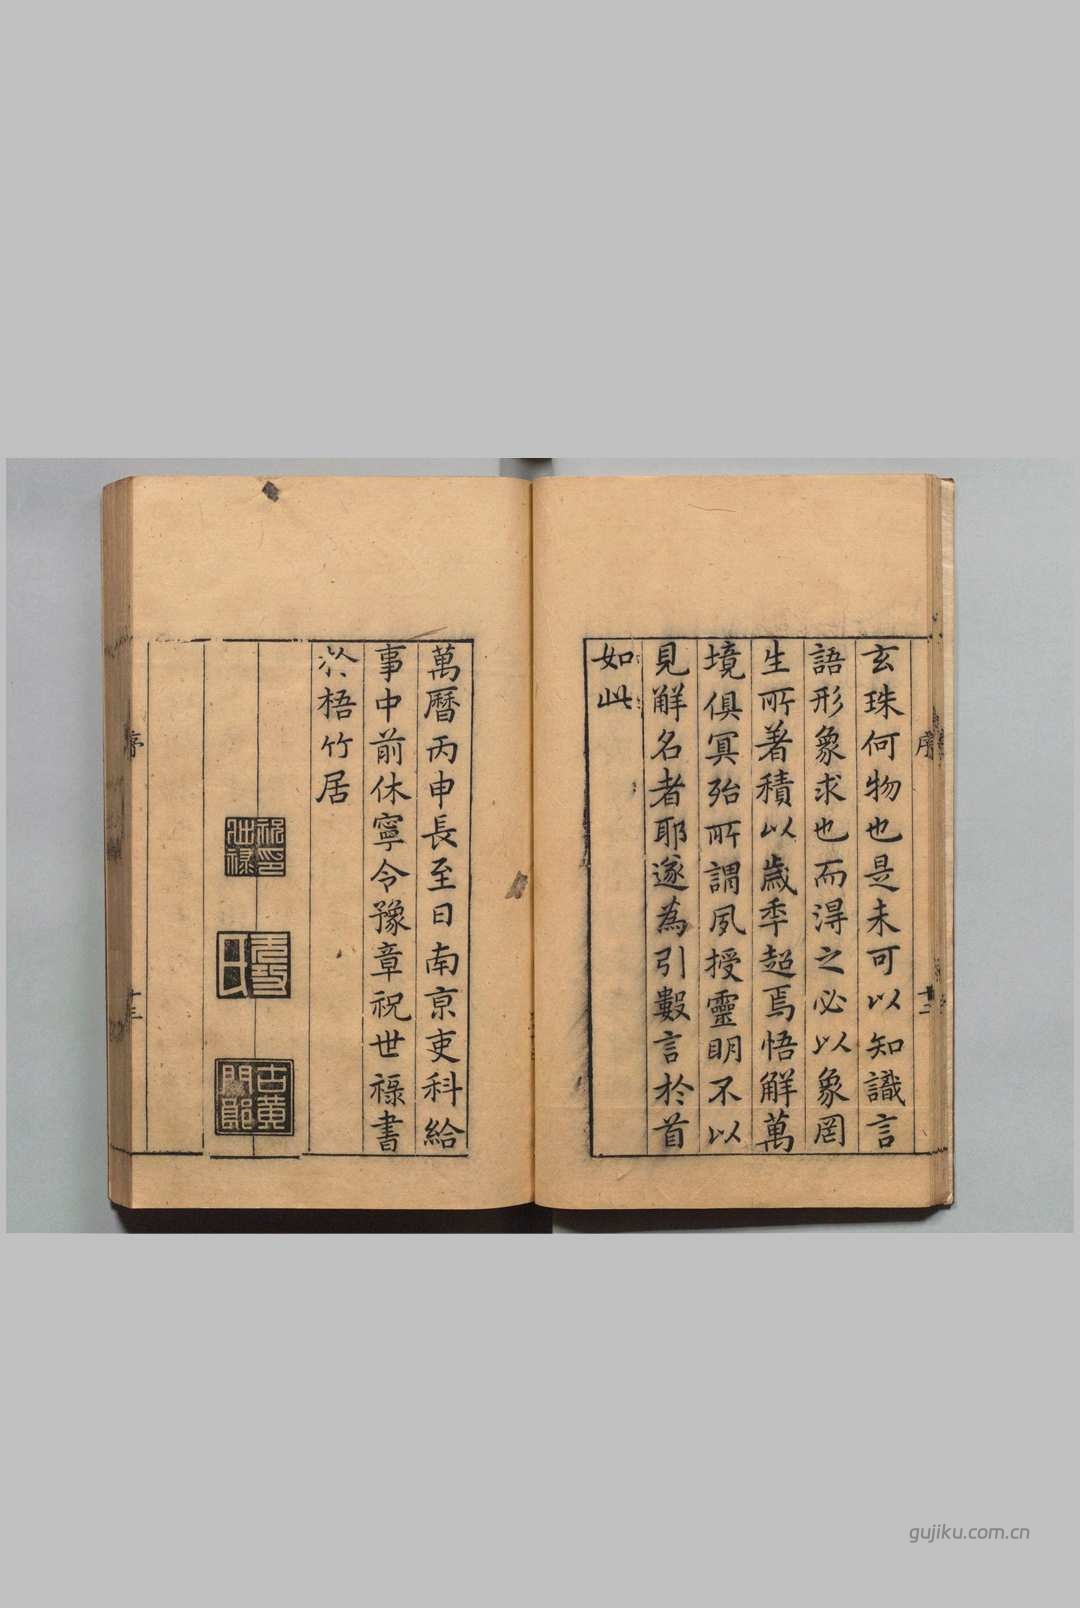 玄珠何物也是未可以知識言
語形象求也而淂之必以象罔
生所著積以歲年超焉悟解萬
境俱冥殆所謂夙授靈明不以
見解名者耶遂為引數言於首
如此
序
十二
萬曆丙申長至日南京吏科給
事中前休寧令豫章祝世祿書
於梧竹居
祝世祿印
無功氏
古黃門郎
序
十三
gujiku.com.cn